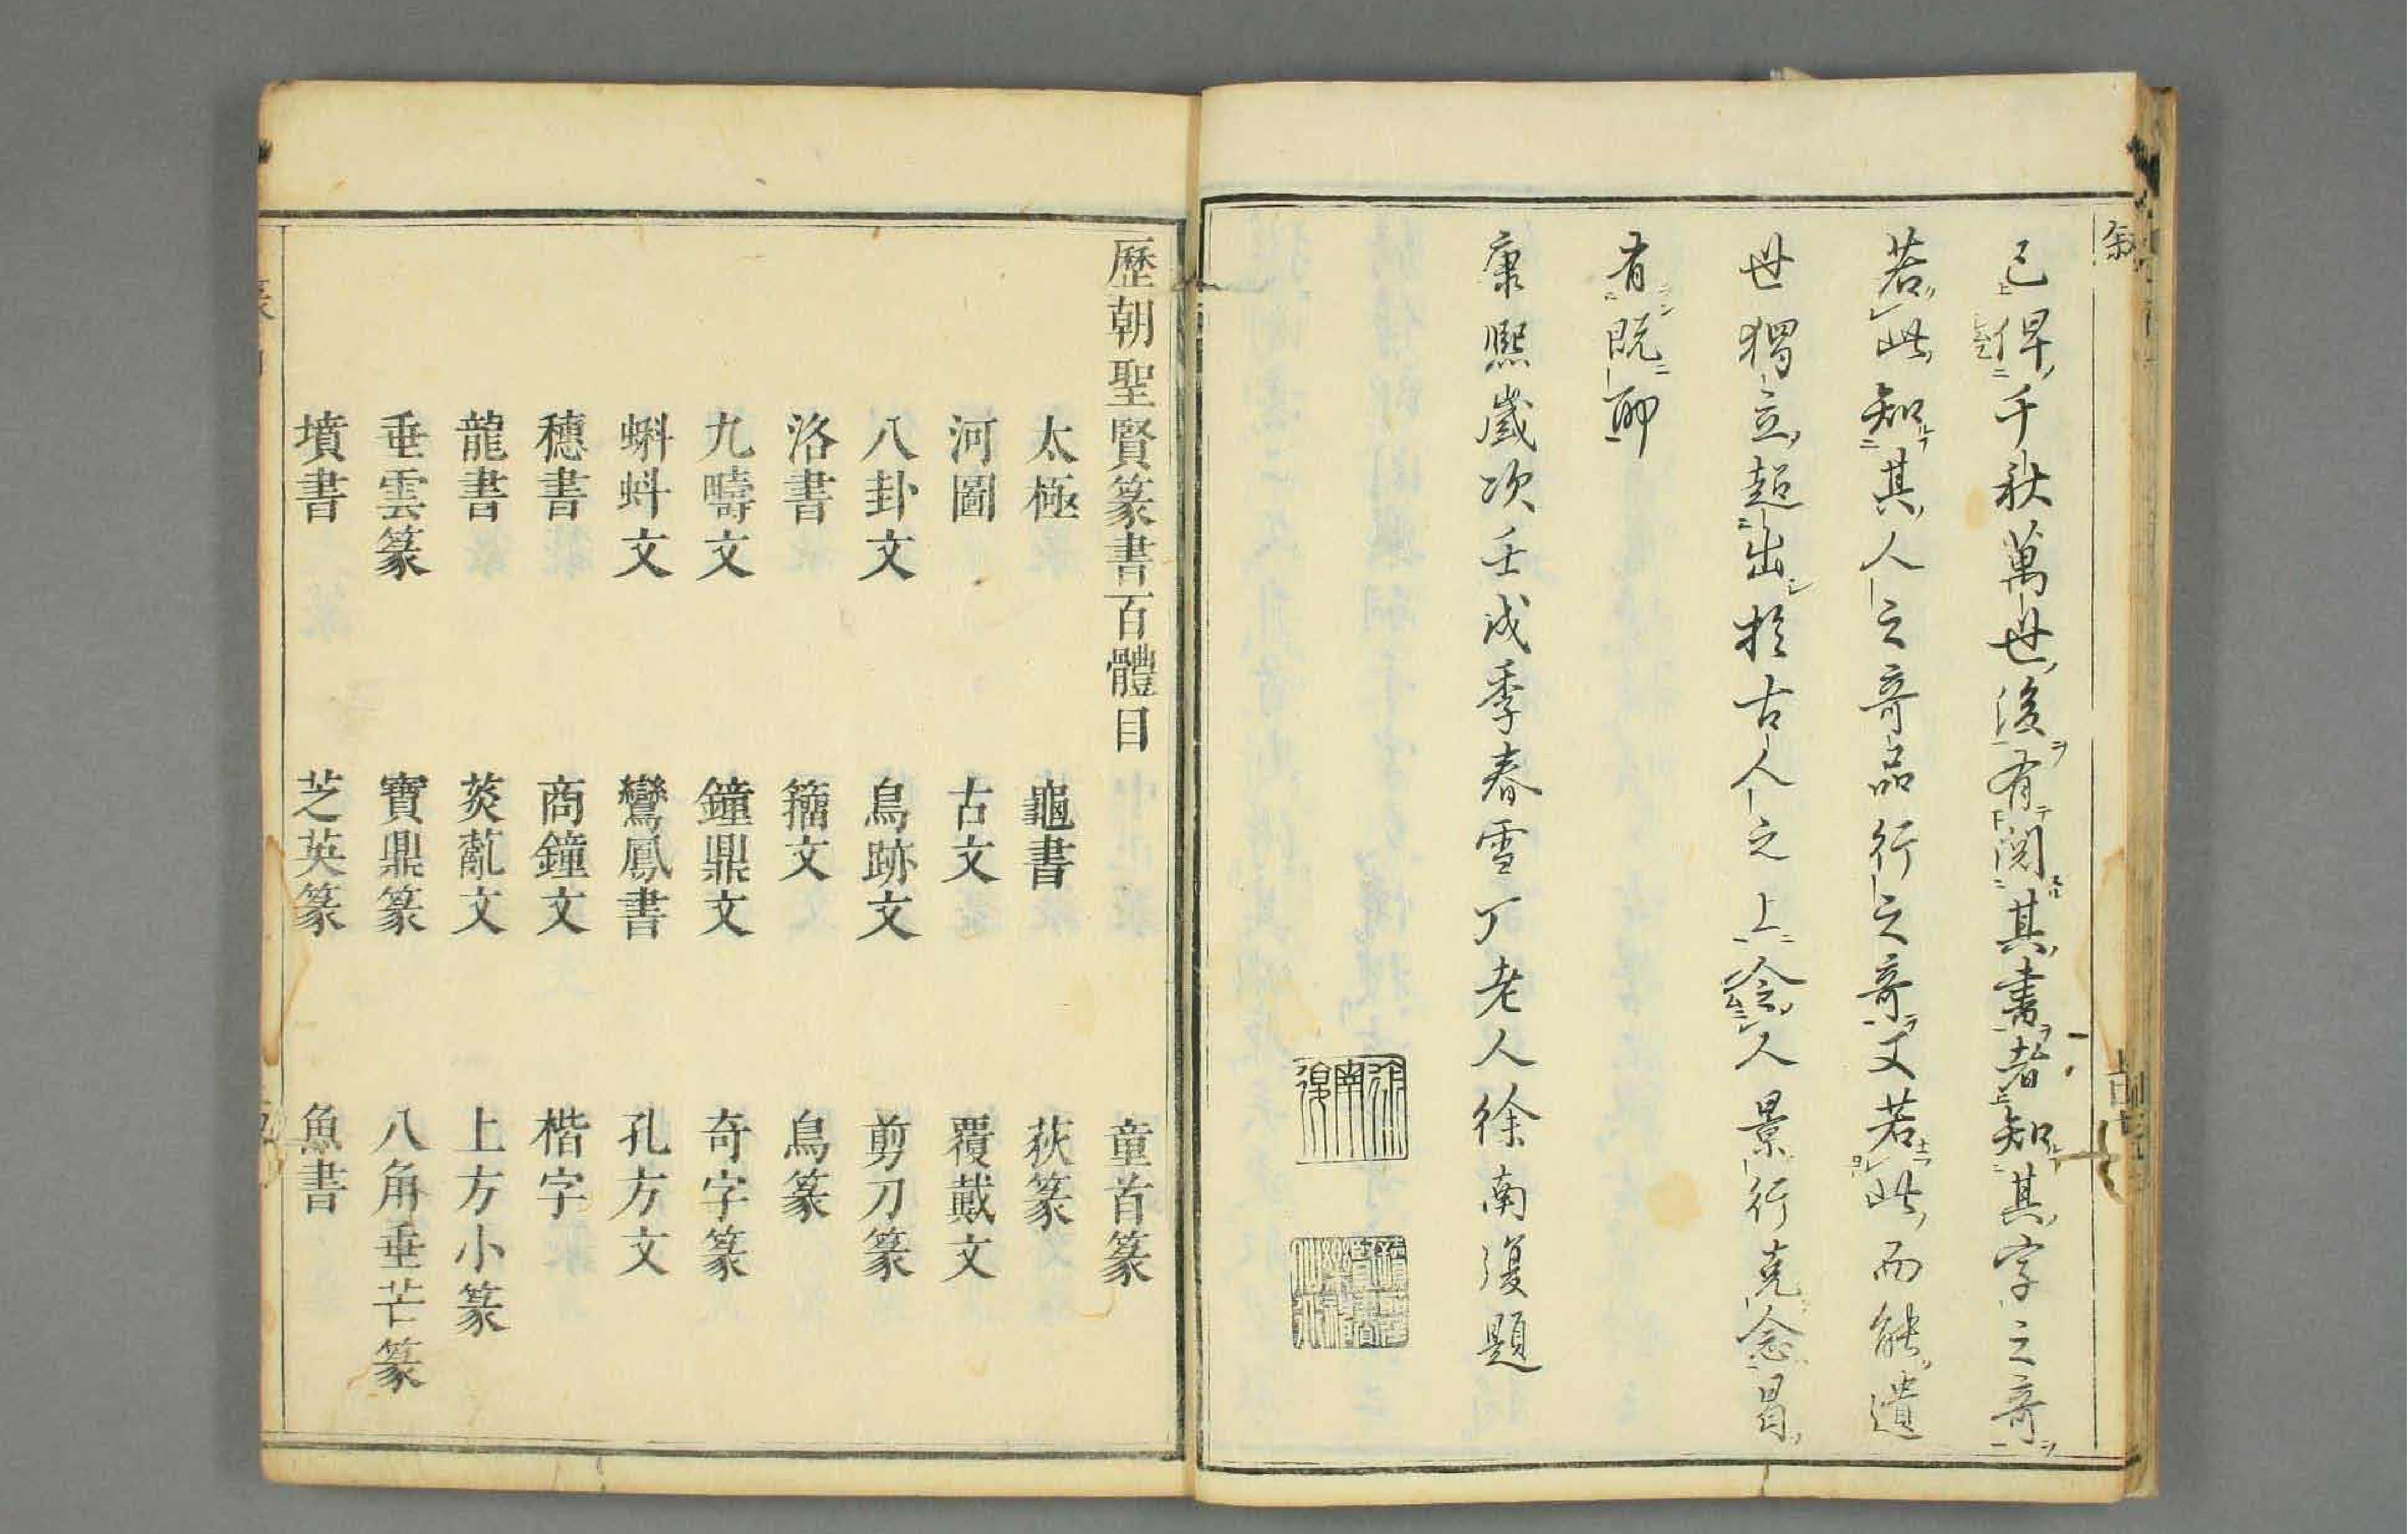 叙
已俾千秋萬世後有閲其書者知其字之竒
若此知其人之竒品行之竒又若此而能遺
世獨立超出於古人之上令人景行克念曷
有旣耶
康熙歲次壬戌季春雪厂老人徐南復題
歷朝聖賢篆書百體目
童首篆
太極 龜書 荻篆
河圖 古文 覆戴文
八卦文 鳥跡文 剪刀篆
洛書 籀文 鳥篆
九疇文 鐘鼎文 奇字篆
蝌蚪文 鸞鳳書 孔方文
穗書 商鐘文 楷字
龍書 菼薍文 上方小篆
垂雲篆 寶鼎篆 八角垂芒篆
墳書 芝英篆 魚書